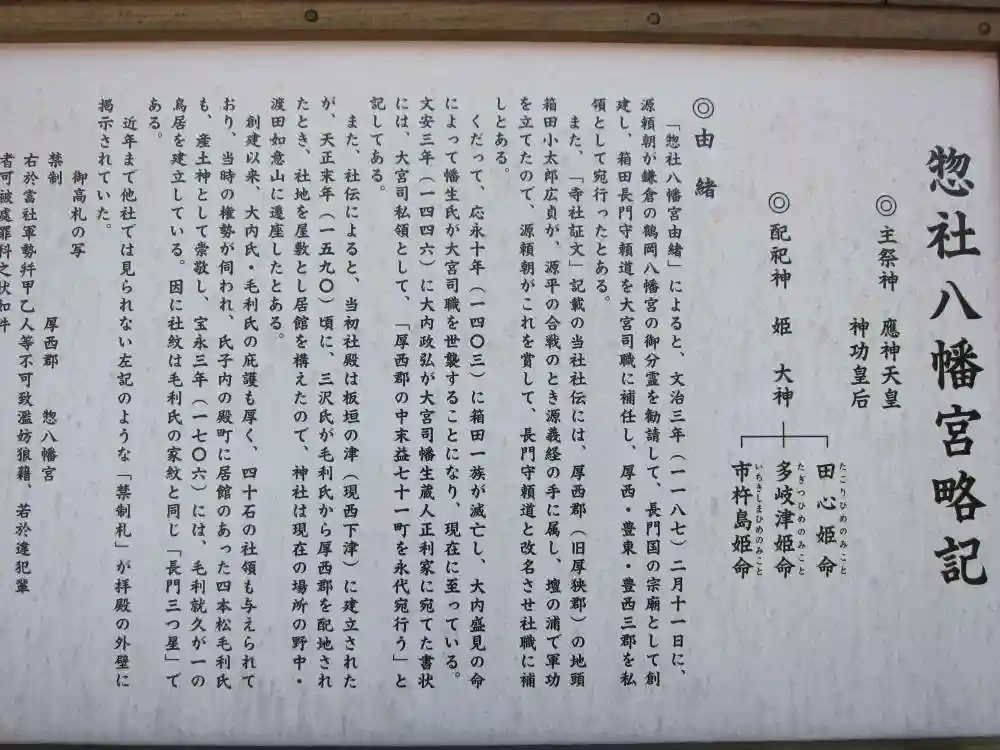 惣社八幡宮略記
◎主祭神　應神天皇
神功皇后
◎配祀神　姫　大神
田心姫命
たごりひめのみこと
多岐津姫命
たぎつひめのみこと
市杵島姫命
いちきしまひめのみこと
◎由緒
「惣社八幡宮由緒」によると、文治三年（一一八七）二月十一日に、
源頼朝が鎌倉の鶴岡八幡宮の御分霊を勧請して、長門国の宗廟として創
建し、箱田長門守頼道を大宮司職に補任し、厚西・豊東・豊西三郡を私
領として宛行ったとある。
また、「寺社証文」記載の当社社伝には、厚西郡（旧厚狭郡）の地頭
箱田小太郎広貞が、源平の合戦のとき源義経の手に属し、壇の浦で軍功
を立てたので、源頼朝がこれを賞して、長門守頼道と改名させ社職に補
しとある。
くだって、応永十年（一四〇三）に箱田一族が滅亡し、大内盛見の命
によって幡生氏が大宮司職を世襲することになり、現在に至っている。
文安三年（一四四六）に大内政弘が大宮司幡生蔵人正利家に宛てた書状
には、大宮司私領として、「厚西郡の中末益七十一町を永代宛行う」と
記してある。
また、社伝によると、当初社殿は板垣の津（現西下津）に建立された
が、天正末年（一五九〇）頃に、三沢氏が毛利氏から厚西郡を配地され
たとき、社地を屋敷とし居館を構えたので、神社は現在の場所の野中・
渡田如意山に遷座したとある。
創建以来、大内氏・毛利氏の庇護も厚く、四十石の社領も与えられて
おり、当時の権勢が伺われ、氏子内の殿町に居館のあった四本松毛利氏
も、産土神として崇敬し、宝永三年（一七〇六）には、毛利就久が一の
鳥居を建立している。因に社紋は毛利氏の家紋と同じ「長門三つ星」で
ある。
近年まで他社では見られない左記のような「禁制札」が拝殿の外壁に
掲示されていた。
御高札の写
禁制　厚西郡　惣八幡宮
右於當社軍勢幷甲乙人等不可致濫妨狼藉、若於違犯輩
者可被處罪科之状如件